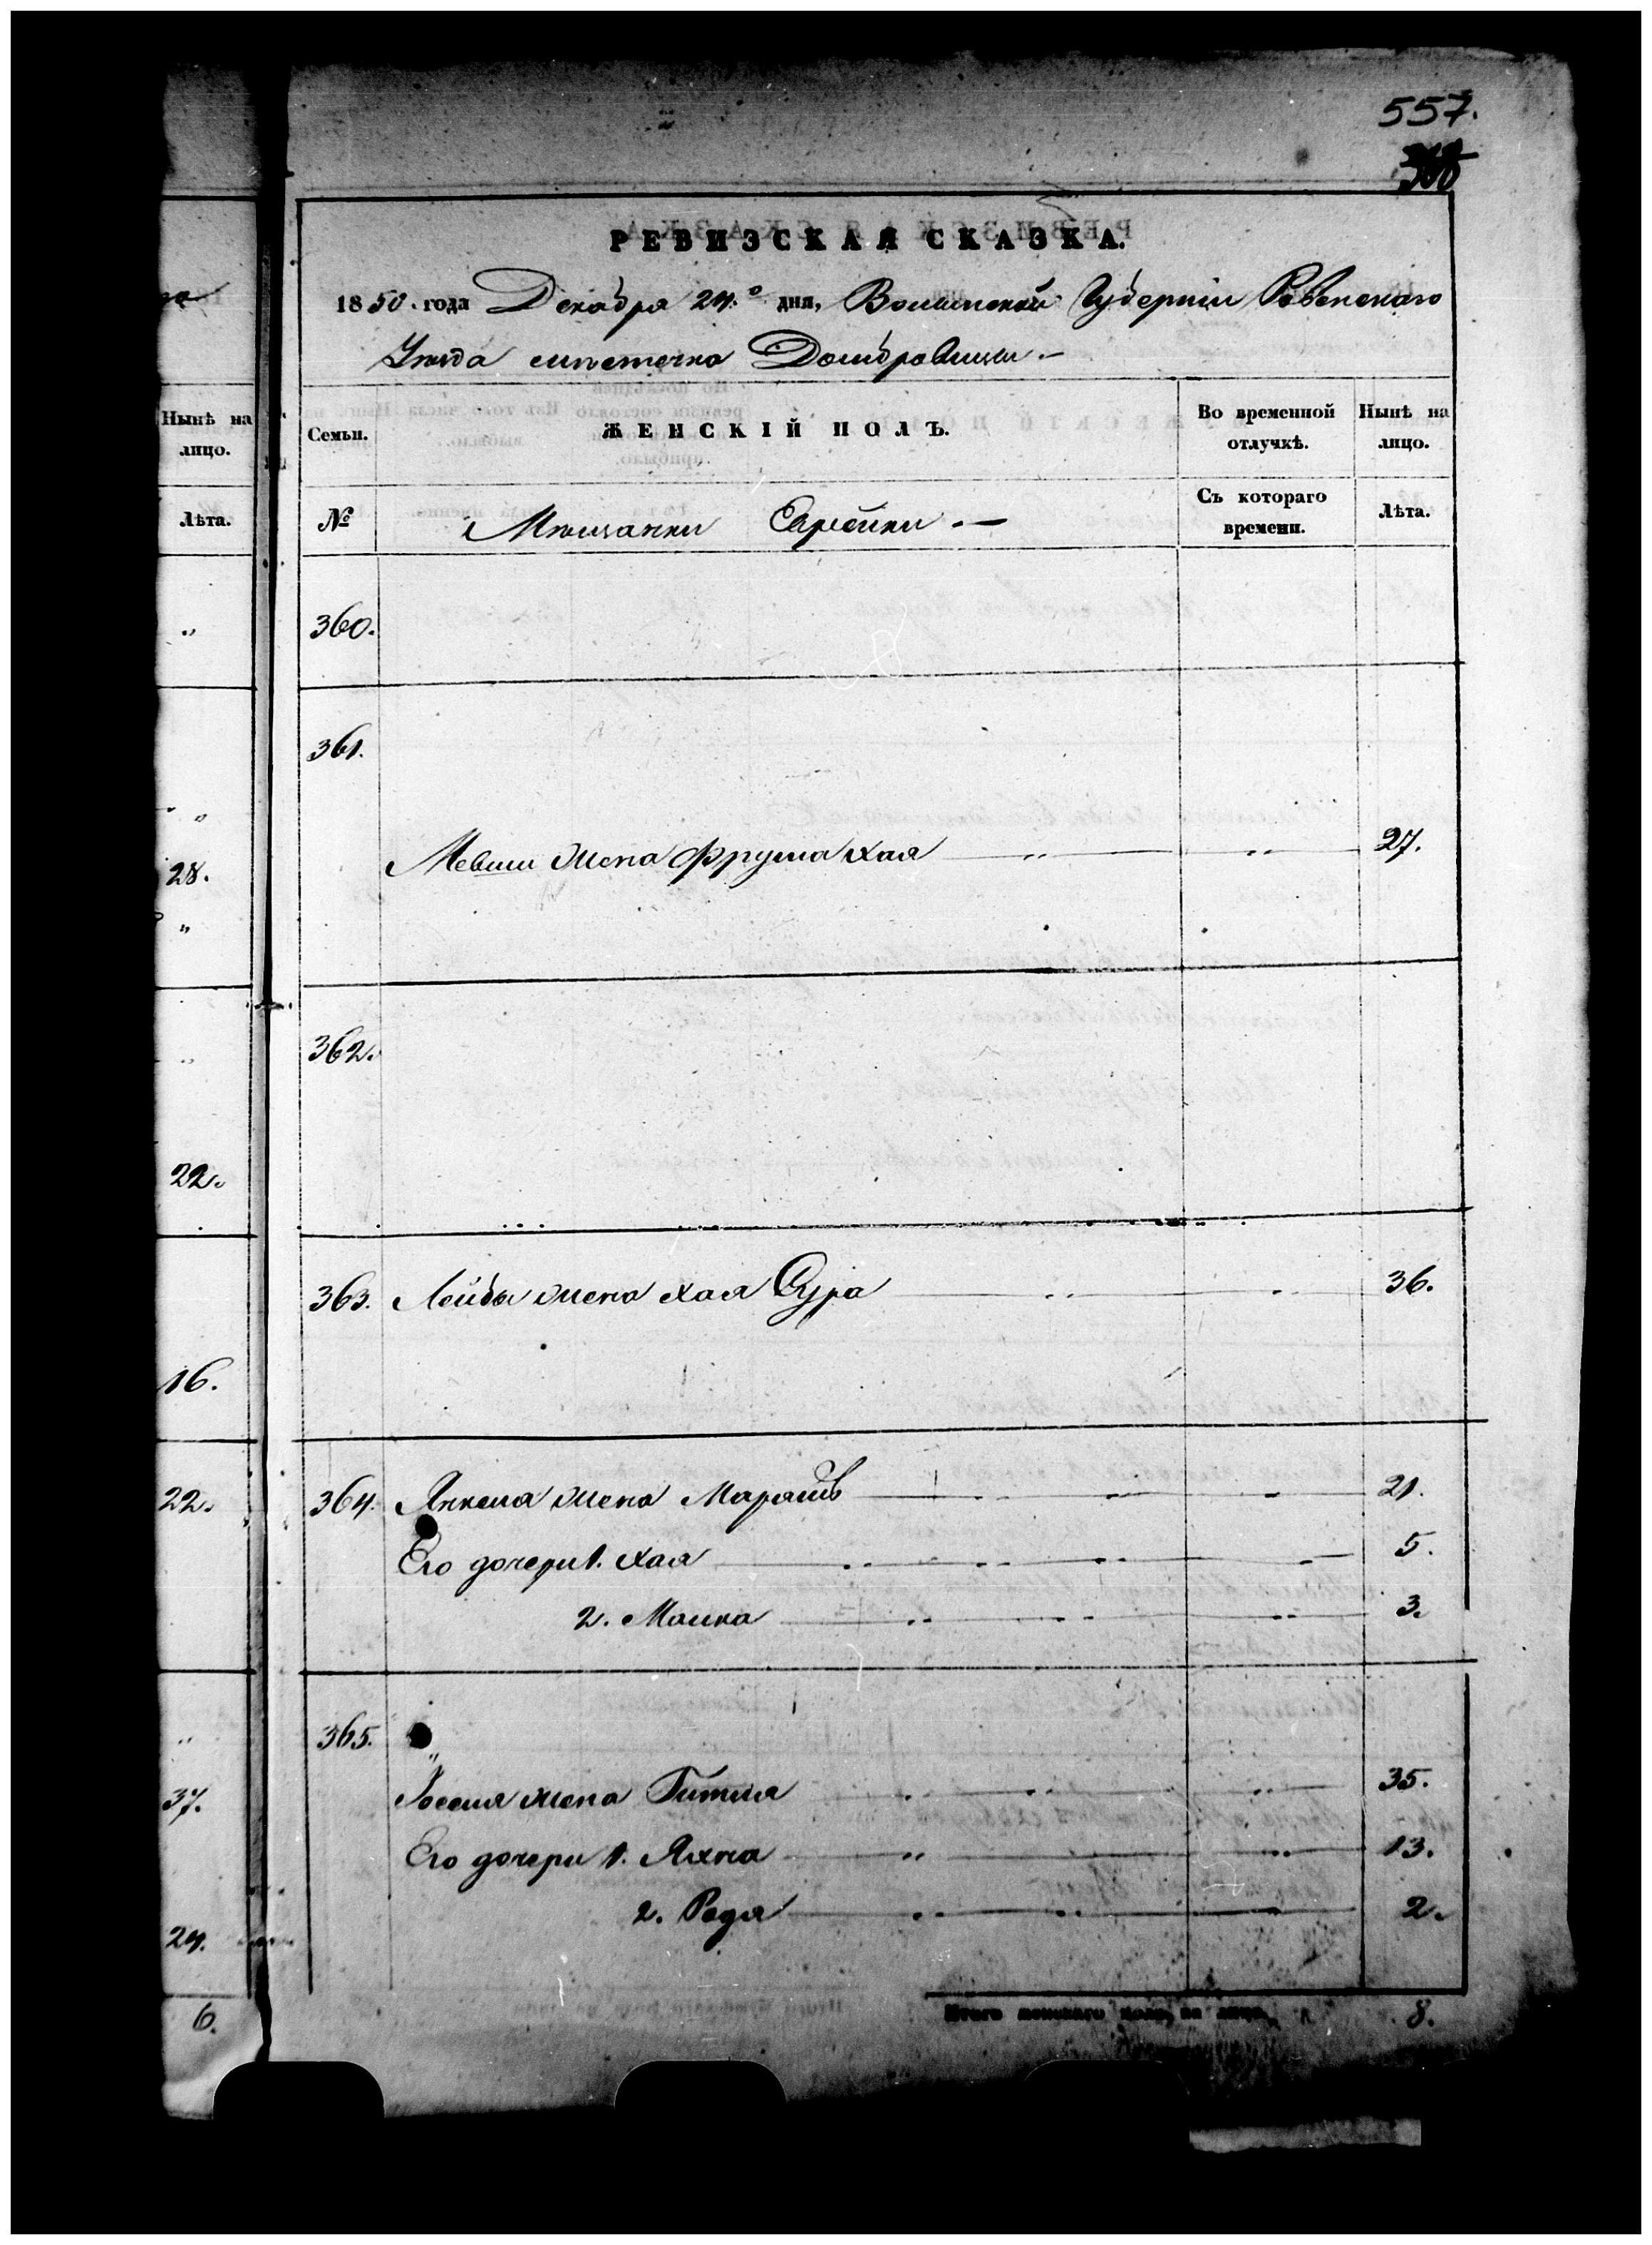 557.
РЕВИЗСКАЯ СКАЗКА.
1850. года Декабря 24.º дня, Волынской Губерніи Ровенскаго
Уѣзда мѣстечка Домбровицы
Нынѣ на лицо.
Семьи.
ЖЕНСКІЙ ПОЛЪ.
Во временной отлучкѣ.
Нынѣ на лицо.
Лѣта.
№
Мѣщанки Еврейки
Съ котораго времени.
Лѣта.
„
360.
361.
„
28.
Мевши жена Фрума Хая „ „ 27.
„
362.
„
22.
363. Лейбы жена Хая Сура „ „ 36.
16.
22.
364. Янкеля жена Марьям 21.
Его дочери 1. Хая 5.
2. Малка 3.
365.
„
37.
Іоселя жена Гитля 35.
Его дочери 1. Яхна 13.
2. Родя 2.
24.
6.
Итого женскаго пола, на лицо 8.